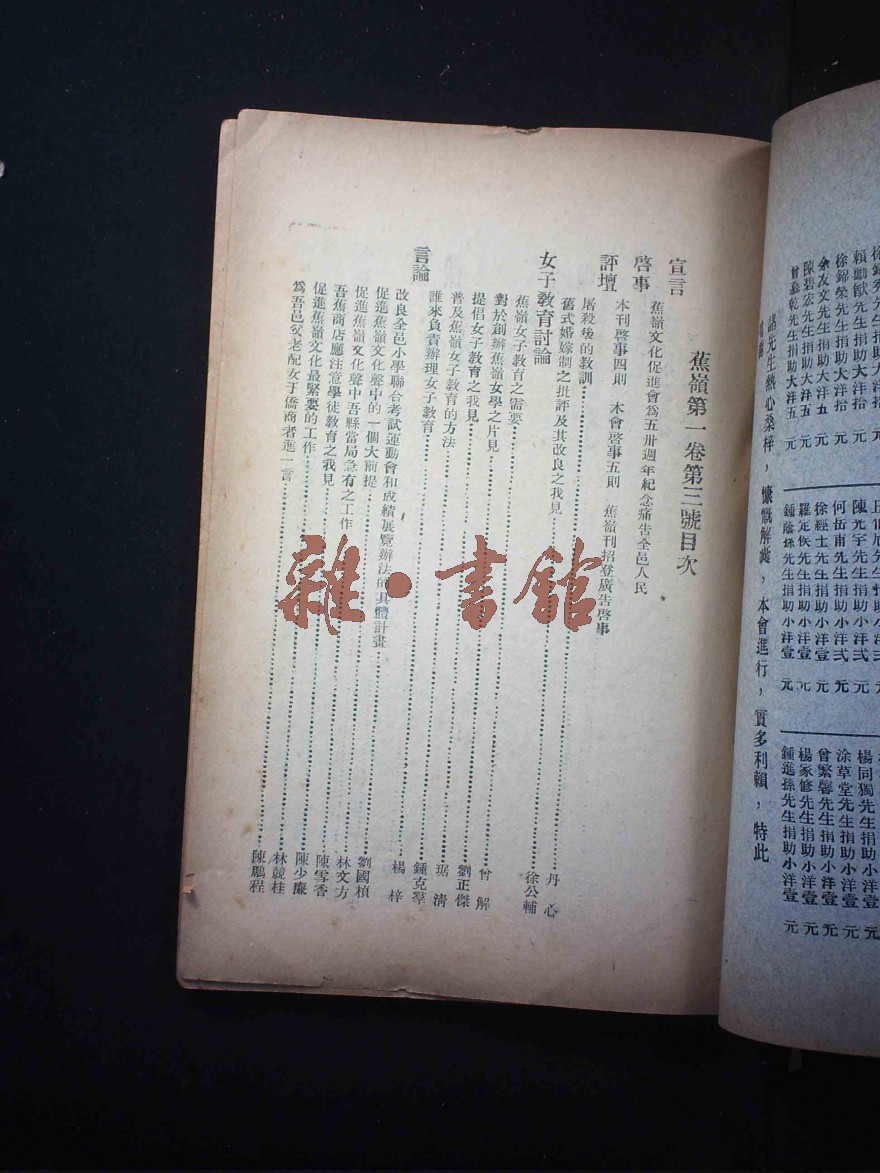 蕉嶺第一卷第三號目次
宣言
蕉嶺文化促進會爲五卅週年紀念痛告全邑人民
啓事
本刊啓事四則 本會啓事五則 蕉嶺刊招登廣告啓事
評壇
屠殺後的教訓 丹心
舊式婚嫁制之批評及其改良之我見 徐公輔
女子教育討論
蕉嶺女子教育之需要 曾解
對於創辦蕉嶺女學之片見 劉正傑
提倡女子教育之我見 琚清
普及蕉嶺女子教育的方法 鍾克羣
誰來負責辦理女子教育 楊梓
言論
改良全邑小學聯合考試運動會和成績展覽辦法的具體計畫 劉國楨
促進蕉嶺文化聲中的一個大前提 林文方
促進蕉嶺文化聲中吾縣當局急有之工作 陳雪香
吾蕉商店應注意學徒教育之我見 陳少廉
促進蕉嶺文化最緊要的工作 林競桂
爲吾邑父老配女于僑商者進一言 陳鵬程
雜·書館
先生捐助大洋拾 元
徐錦榮先生捐助大洋拾 元
余友文先生捐助大洋五 元
陳碧宏先生捐助大洋五 元
先生捐助大洋五 元
陳光宇先生捐助小洋弍 元
何岳甫先生捐助小洋弍 元
徐經士先生捐助小洋壹 元
羅定侯先生捐助小洋壹 元
鍾蔭孫先生捐助小洋壹 元
楊同獨先生捐助小洋壹 元
涂草堂先生捐助小洋壹 元
曾繁馨先生捐助小洋壹 元
楊家修先生捐助小洋壹 元
鍾進孫先生捐助小洋壹 元
諸先生熱心桑梓，慷慨解囊，本會進行，實多利賴，特此